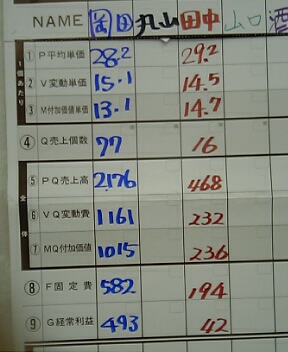 NAME 丸山 田中 山口 酒
1個あたり
① P平均単価 28.2 29.2
② V変動単価 15.1 14.5
③ M付加価値単価 13.1 14.7
④ Q売上個数 77 16
全体
⑤ PQ売上高 2176 468
⑥ VQ変動費 1161 232
⑦ MQ付加価値 1015 236
⑧ F固定費 582 194
⑨ G経常利益 493 42